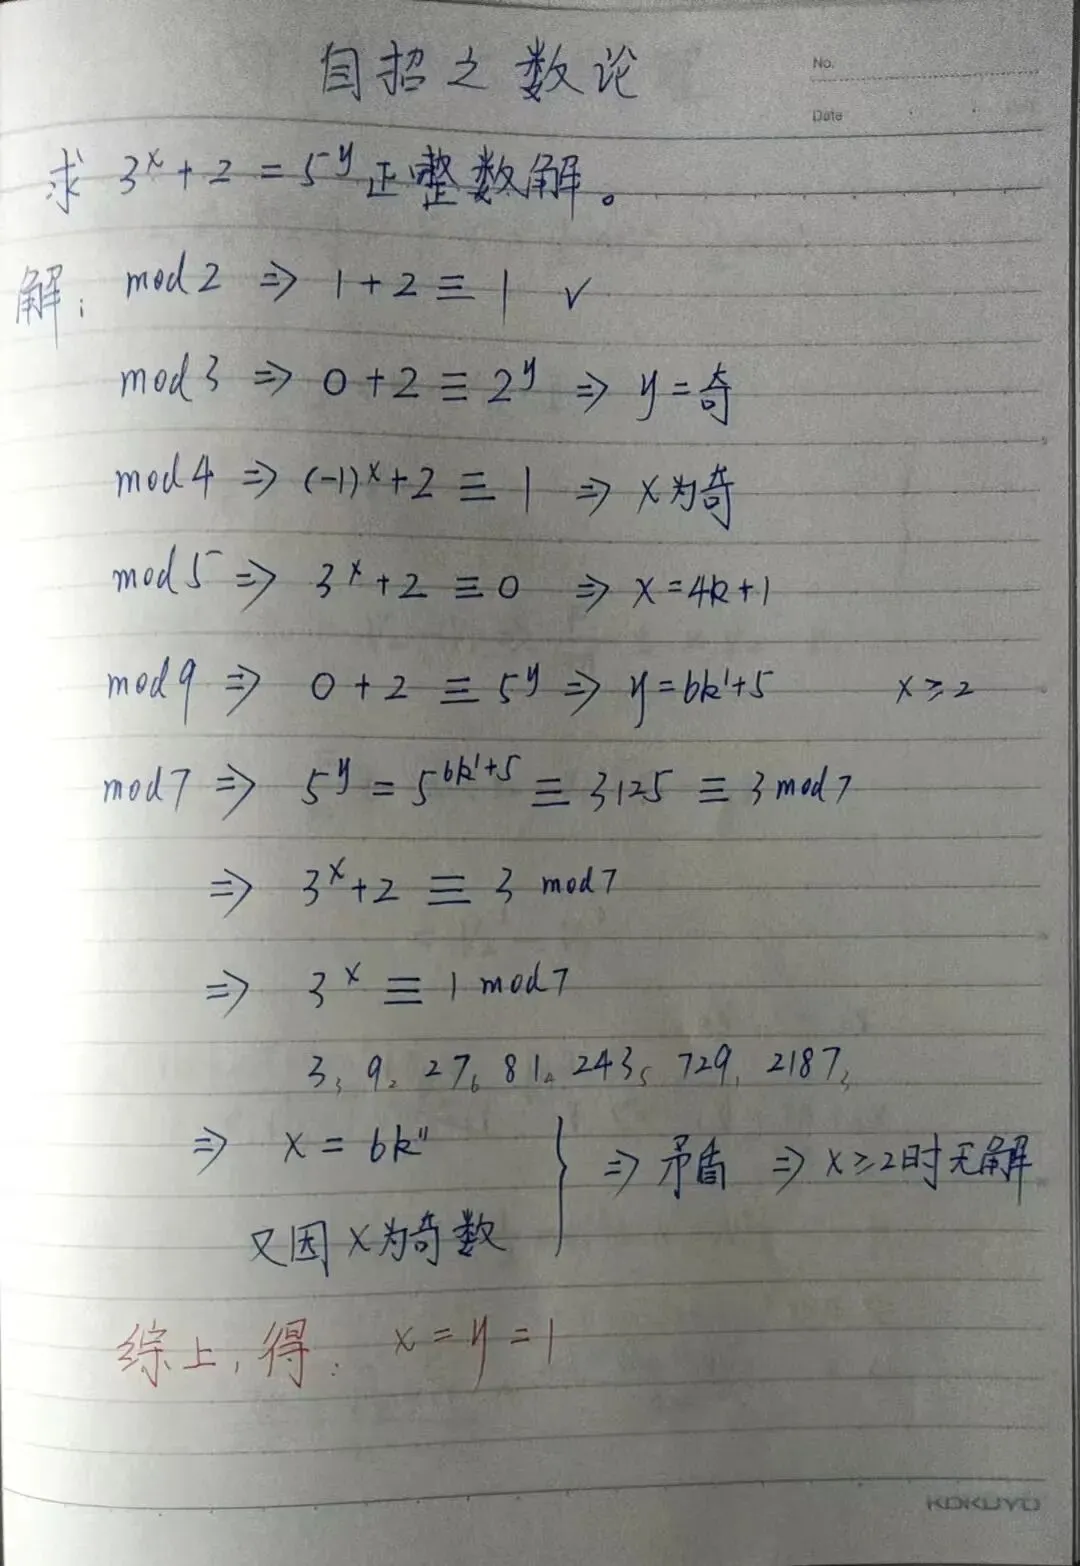 自招之数论
No.
Date
求 3^x+2=5^y 正整数解。
解: mod2 ⇒ 1+2≡1 ✓
mod3 ⇒ 0+2≡2^y ⇒ y=奇
mod4 ⇒ (-1)^x+2≡1 ⇒ x为奇
mod5 ⇒ 3^x+2≡0 ⇒ x=4k+1
mod9 ⇒ 0+2≡5^y ⇒ y=6k'+5 x≥2
mod7 ⇒ 5^y=5^{6k'+5}≡3125≡3 mod7
⇒ 3^x+2≡3 mod7
⇒ 3^x≡1 mod7
3₃ 9₂ 27₆ 81₄ 243₅ 729₁ 2187₃
⇒ x=6k" } ⇒ 矛盾 ⇒ x≥2时无解
又因 x为奇数
综上,得: x=y=1
KOKUYO